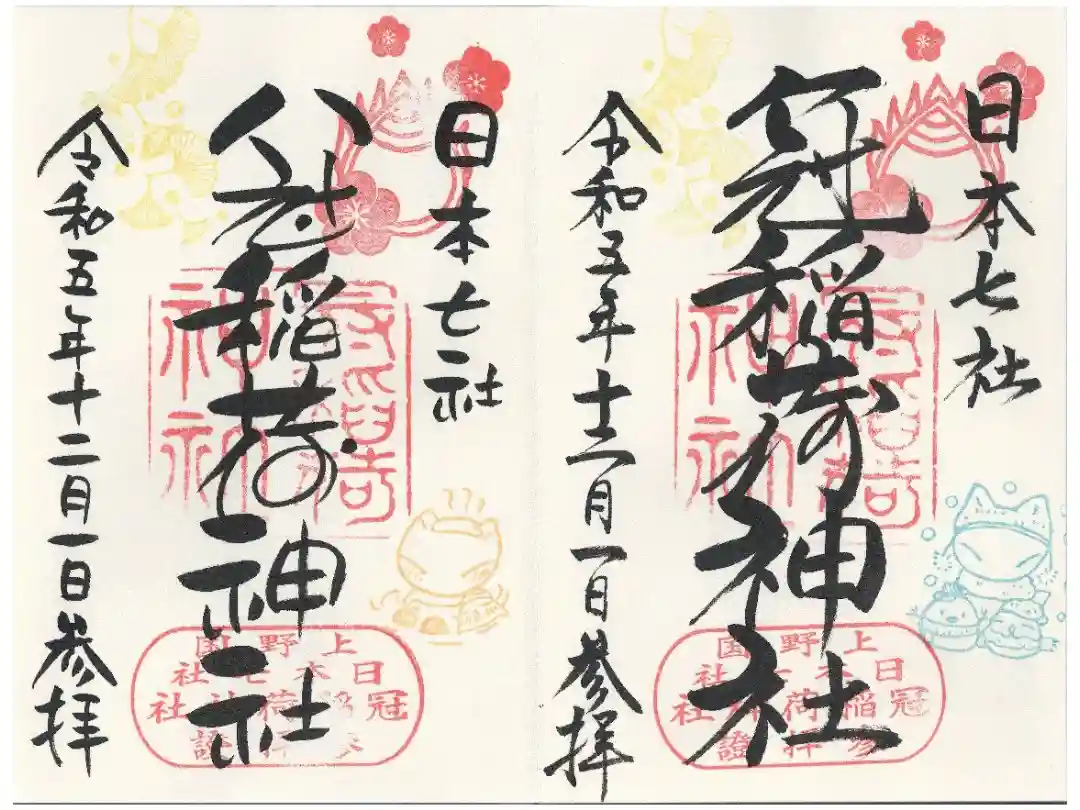 日本七社
冠稲荷神社
令和五年十二月一日参拝
冠稲荷
神社
上野国
日本七社
冠稲荷神社
参拝證
日本七社
冠稲荷神社
令和五年十二月一日参拝
冠稲荷
神社
上野国
日本七社
冠稲荷神社
参拝證